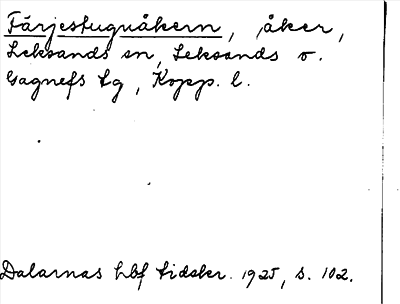 Färjestuguåkern, åker,
Leksands sn, Leksands o.
Gagnefs tg, Kopp. l.
Dalarnas hbf tidskr. 1925, s. 102.